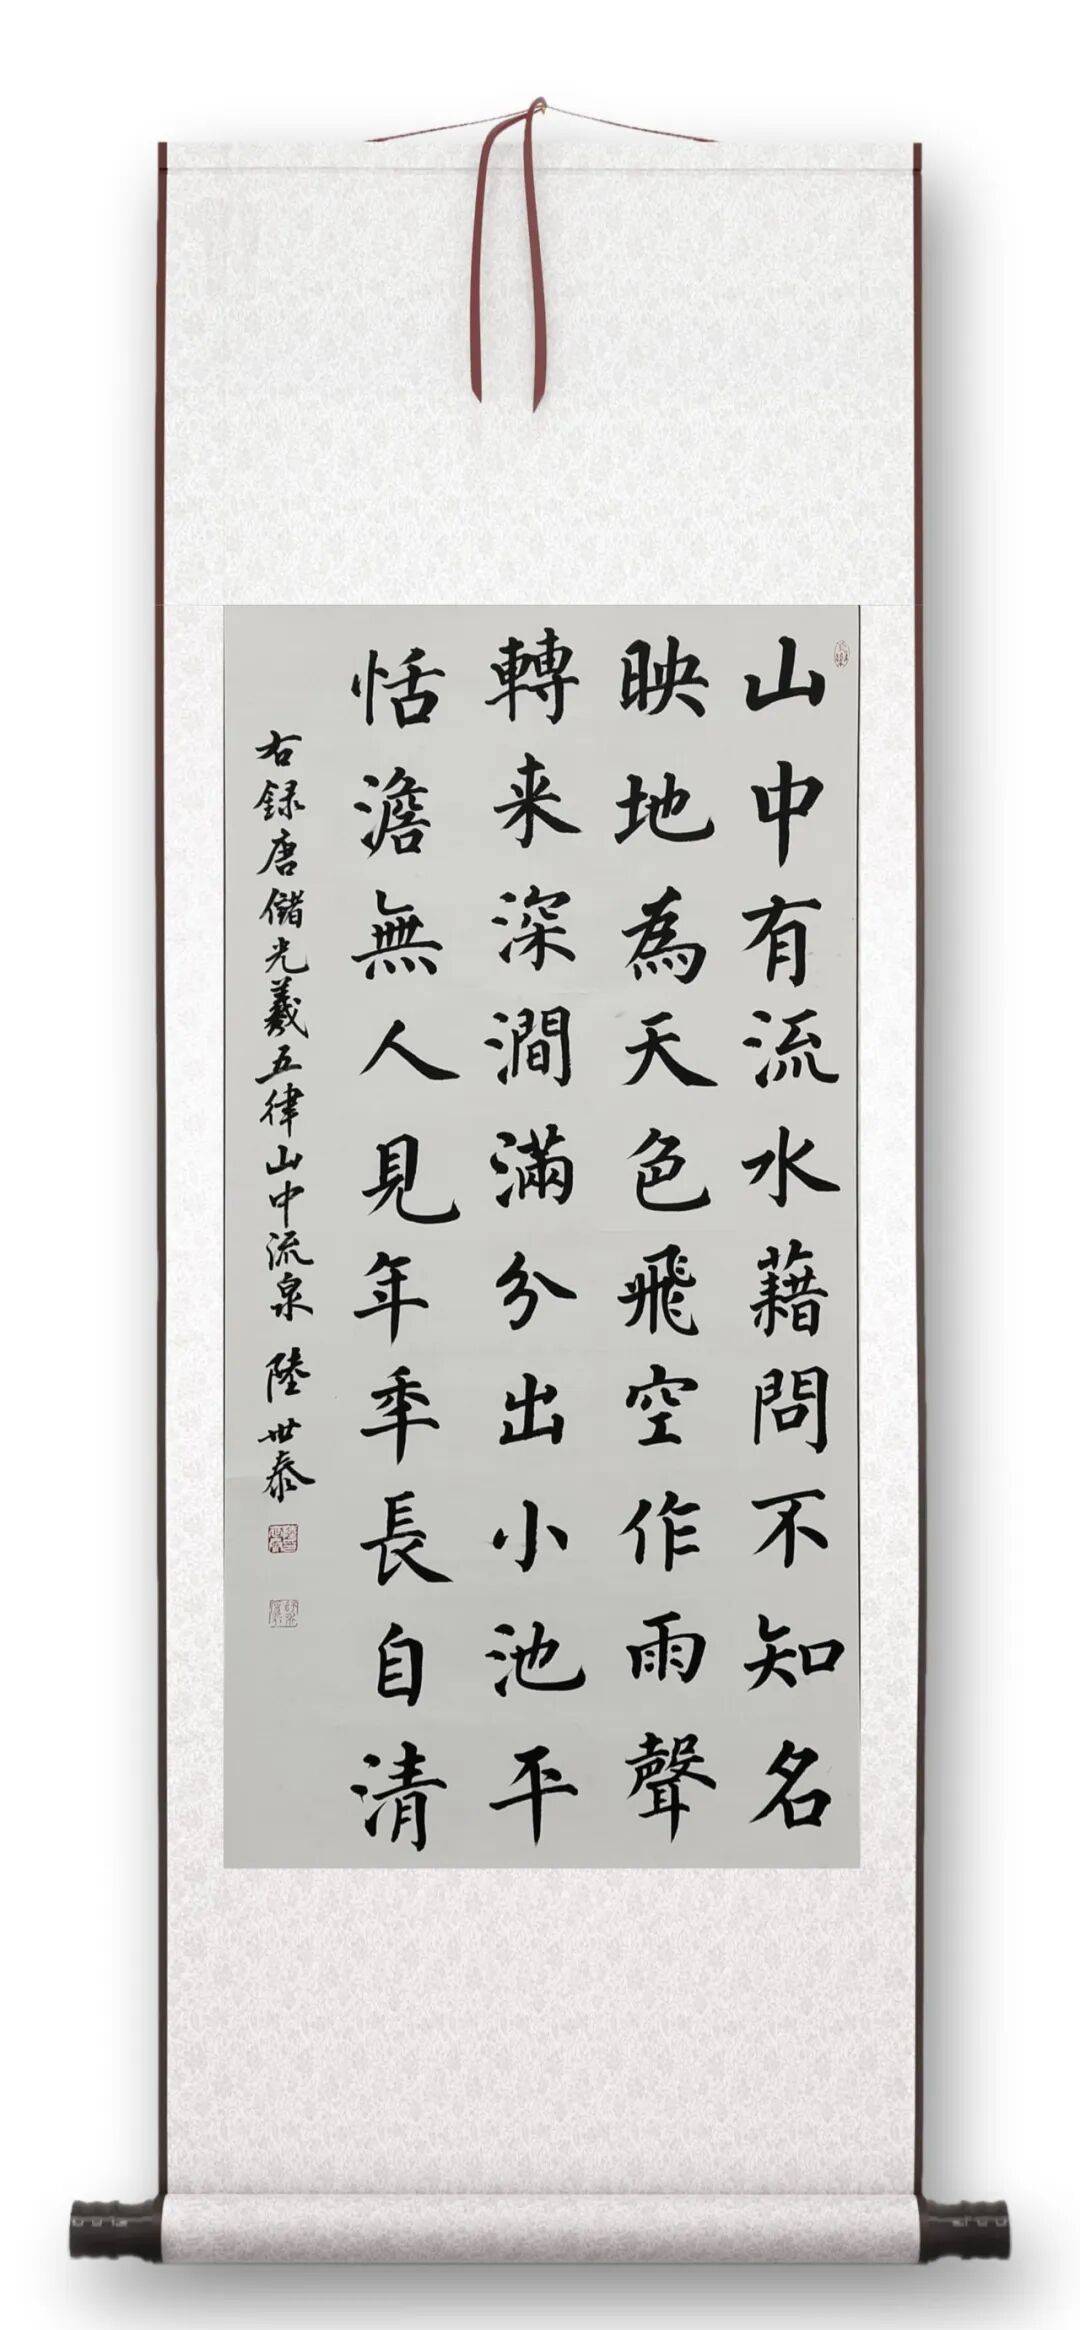 山中有流水藉問不知名
映地為天色飛空作雨聲
轉来深澗滿分出小池平
恬澹無人見年年長自清
右録唐儲光羲五律山中流泉 陸世泰